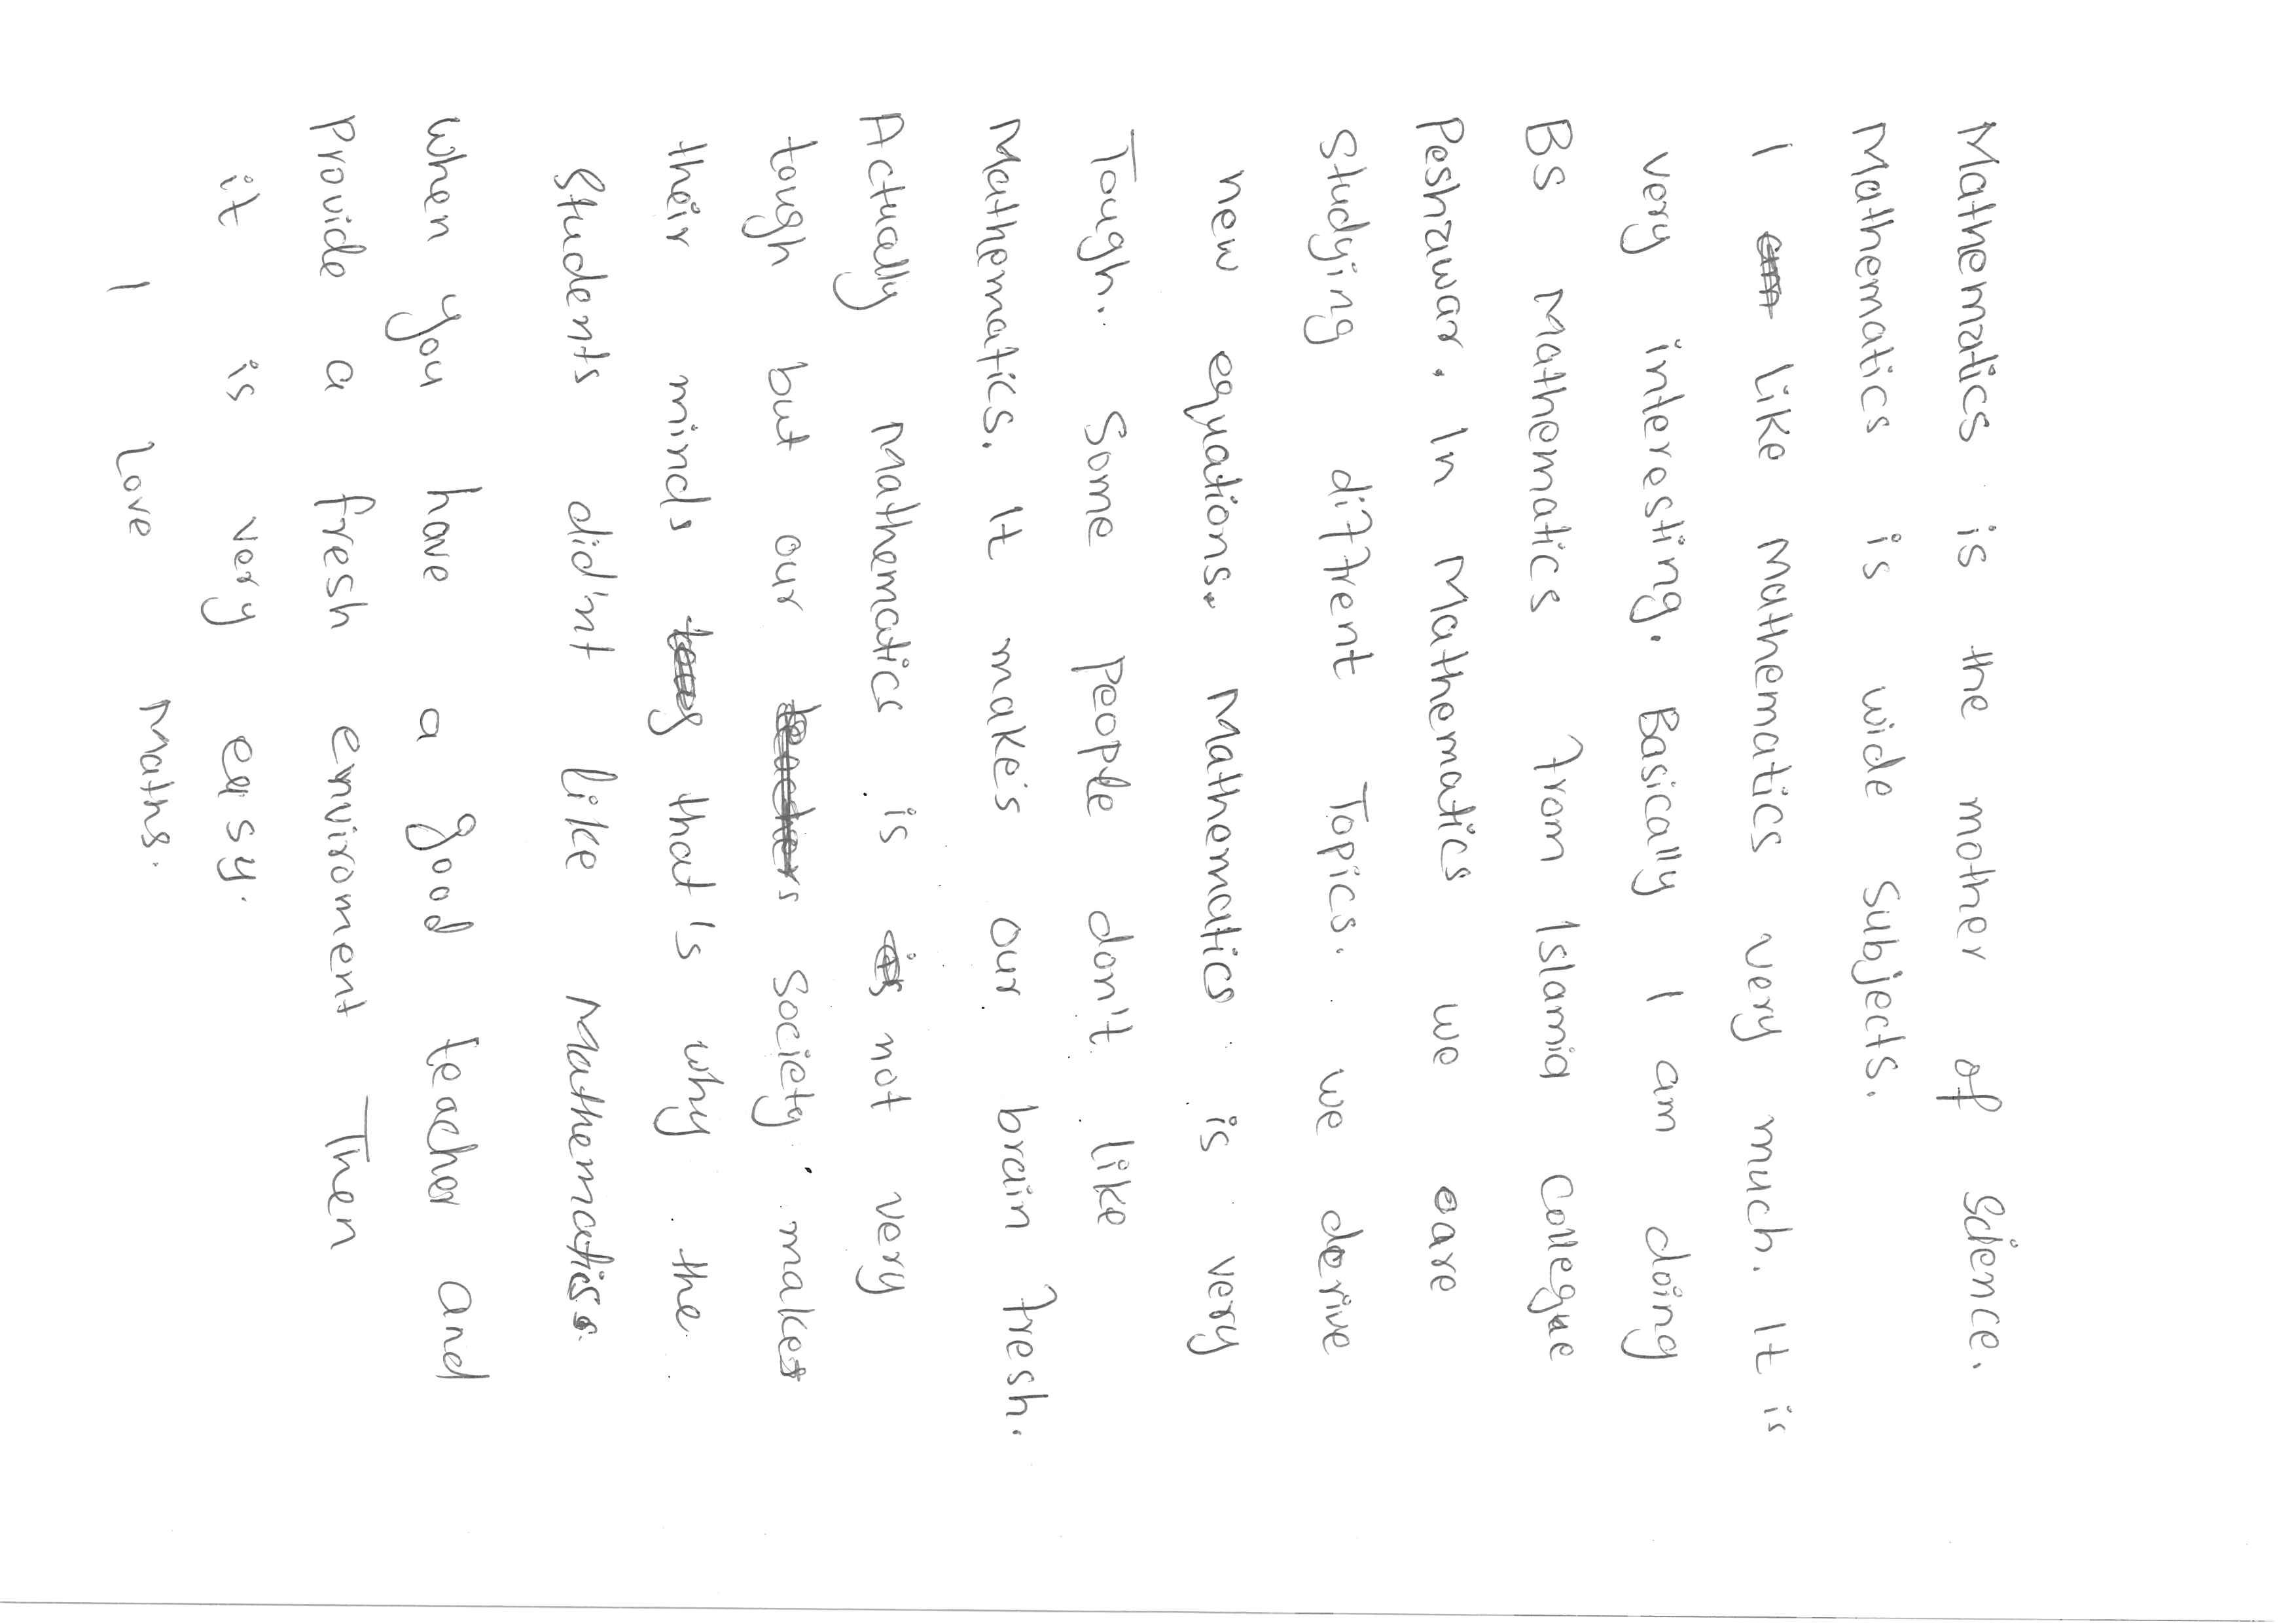 Mathematics is the mother of Science.
Mathematics is wide Subjects.
I am Like Mathematics very much. It is
very interesting. Basically I am doing
BS Mathematics from Islamia Collegue
Peshawar. In Mathematics we are
Studying diffrent Topics. we derive
new equations. Mathematics is very
Tough. Some people don't like
Mathematics. It make's our brain fresh.
Actually Mathematics is is not very
tough but our teachers Society makes
their minds toug that's why the
Students did'nt like Mathematics.
When you have a good teacher and
Provide a fresh enviroment Then
it is very easy.
I Love Maths.